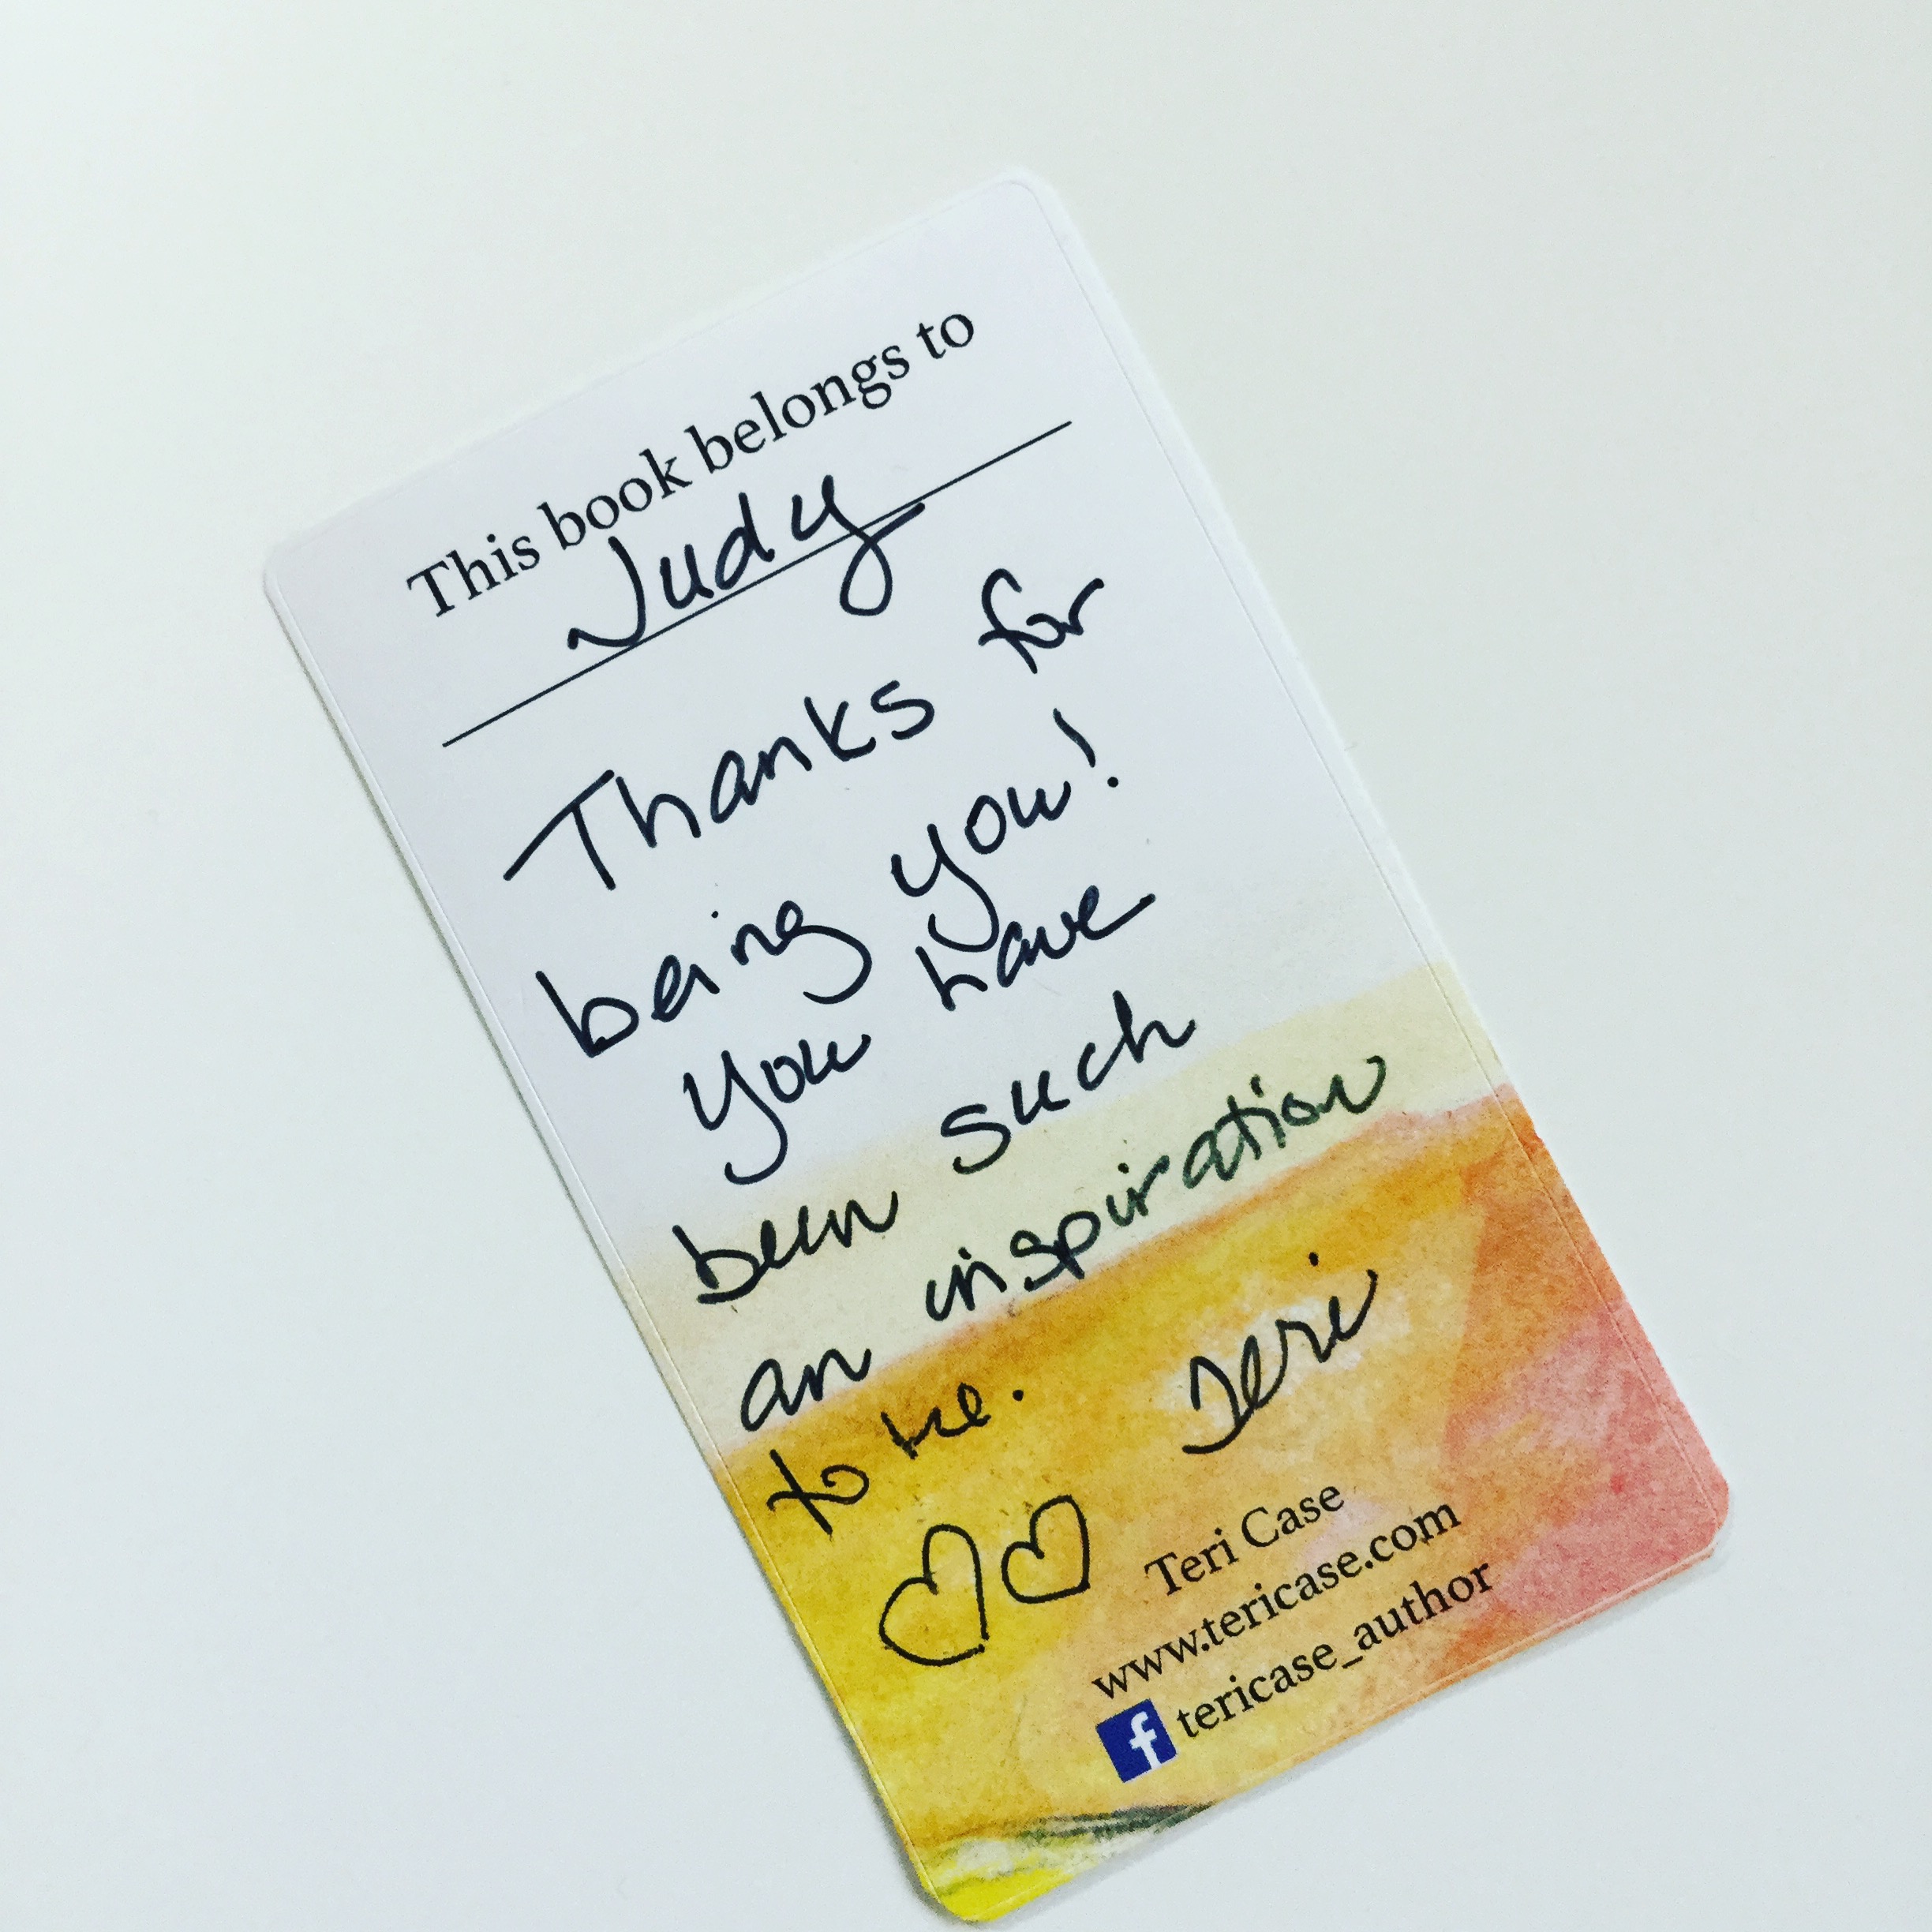 This book belongs to
Judy
Thanks for
being you!
You have
been such
an inspiration
to me.
Teri
Teri Case
www.tericase.com
f tericase_author